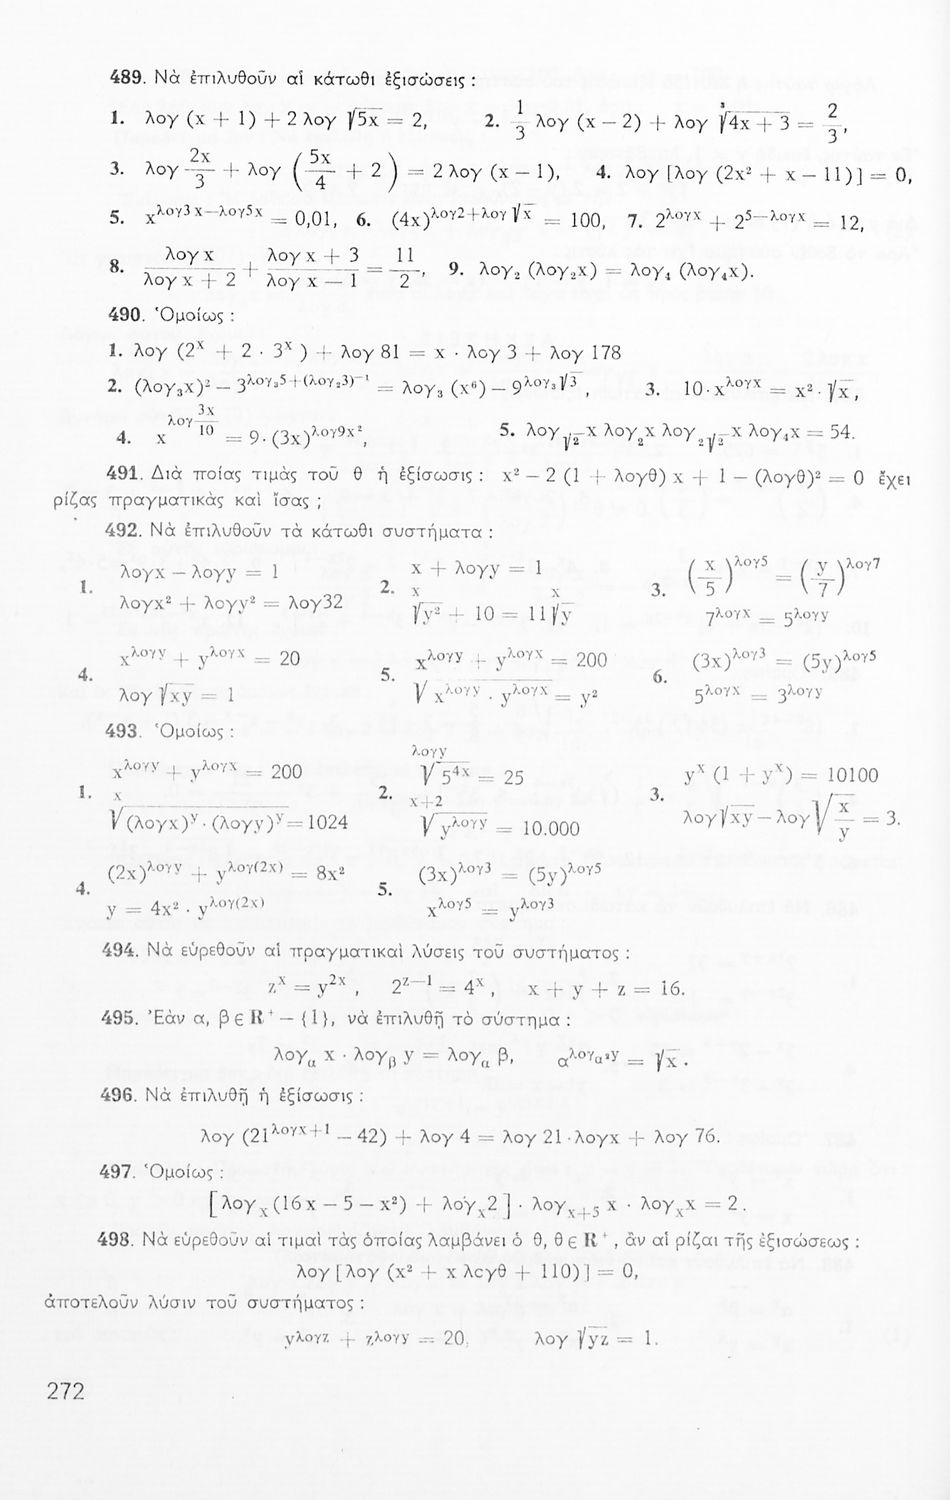 489. Νὰ ἐπιλυθοῦν αἱ κάτωθι ἐξισώσεις :
1. λογ (x + 1) + 2 λογ √5x = 2, 2. 1/3 λογ (x − 2) + λογ ³√4x + 3 = 2/3,
3. λογ 2x/3 + λογ (5x/4 + 2) = 2 λογ (x − 1), 4. λογ [λογ (2x² + x − 11)] = 0,
5. x^λογ3x−λογ5x = 0,01, 6. (4x)^λογ2+λογ√x = 100, 7. 2^λογx + 2^5−λογx = 12,
8. λογ x / λογ x + 2 + λογ x + 3 / λογ x − 1 = 11/2, 9. λογ₂ (λογ₂x) = λογ₄ (λογ₄x).
490. Ὁμοίως :
1. λογ (2^x + 2 · 3^x) + λογ 81 = x · λογ 3 + λογ 178
2. (λογ₃x)² − 3^λογ₃5+(λογ₂3)^−1 = λογ₃ (x⁶) − 9^λογ₃√3, 3. 10·x^λογx = x²·√x,
4. x^λογ 3x/10 = 9·(3x)^λογ9x², 5. λογ_√2 x λογ₂x λογ_2√2 x λογ₄x = 54.
491. Διὰ ποίας τιμὰς τοῦ θ ἡ ἐξίσωσις : x² − 2 (1 + λογθ) x + 1 − (λογθ)² = 0 ἔχει
ρίζας πραγματικὰς καὶ ἴσας ;
492. Νὰ ἐπιλυθοῦν τὰ κάτωθι συστήματα :
1. λογx − λογy = 1
λογx² + λογy² = λογ32
2. x + λογy = 1
ˣ√y² + 10 = 11 ˣ√y
3. (x/5)^λογ5 = (y/7)^λογ7
7^λογx = 5^λογy
4. x^λογy + y^λογx = 20
λογ √xy = 1
5. x^λογy + y^λογx = 200
√x^λογy · y^λογx = y²
6. (3x)^λογ3 = (5y)^λογ5
5^λογx = 3^λογy
493. Ὁμοίως :
1. x^λογy + y^λογx = 200
ˣ√(λογx)^y · (λογy)^y = 1024
2. ^λογy√5^4x = 25
^x+2√y^λογy = 10.000
3. y^x (1 + y^x) = 10100
λογ√xy − λογ√x/y = 3.
4. (2x)^λογy + y^λογ(2x) = 8x²
y = 4x² · y^λογ(2x)
5. (3x)^λογ3 = (5y)^λογ5
x^λογ5 = y^λογ3
494. Νὰ εὑρεθοῦν αἱ πραγματικαὶ λύσεις τοῦ συστήματος :
z^x = y^2x , 2^z−1 = 4^x , x + y + z = 16.
495. Ἐὰν α, β ϵ R⁺ − {1}, νὰ ἐπιλυθῇ τὸ σύστημα :
λογ_α x · λογ_β y = λογ_α β, α^λογ_α²y = √x .
496. Νὰ ἐπιλυθῇ ἡ ἐξίσωσις :
λογ (21^λογx+1 − 42) + λογ 4 = λογ 21·λογx + λογ 76.
497. Ὁμοίως :
[λογ_x(16x − 5 − x²) + λογ_x2] · λογ_x+5 x · λογ_xx = 2.
498. Νὰ εὑρεθοῦν αἱ τιμαὶ τὰς ὁποίας λαμβάνει ὁ θ, θ ϵ R⁺, ἂν αἱ ρίζαι τῆς ἐξισώσεως :
λογ [λογ (x² + x λογθ + 110)] = 0,
ἀποτελοῦν λύσιν τοῦ συστήματος :
y^λογz + z^λογy = 20, λογ √yz = 1.
272